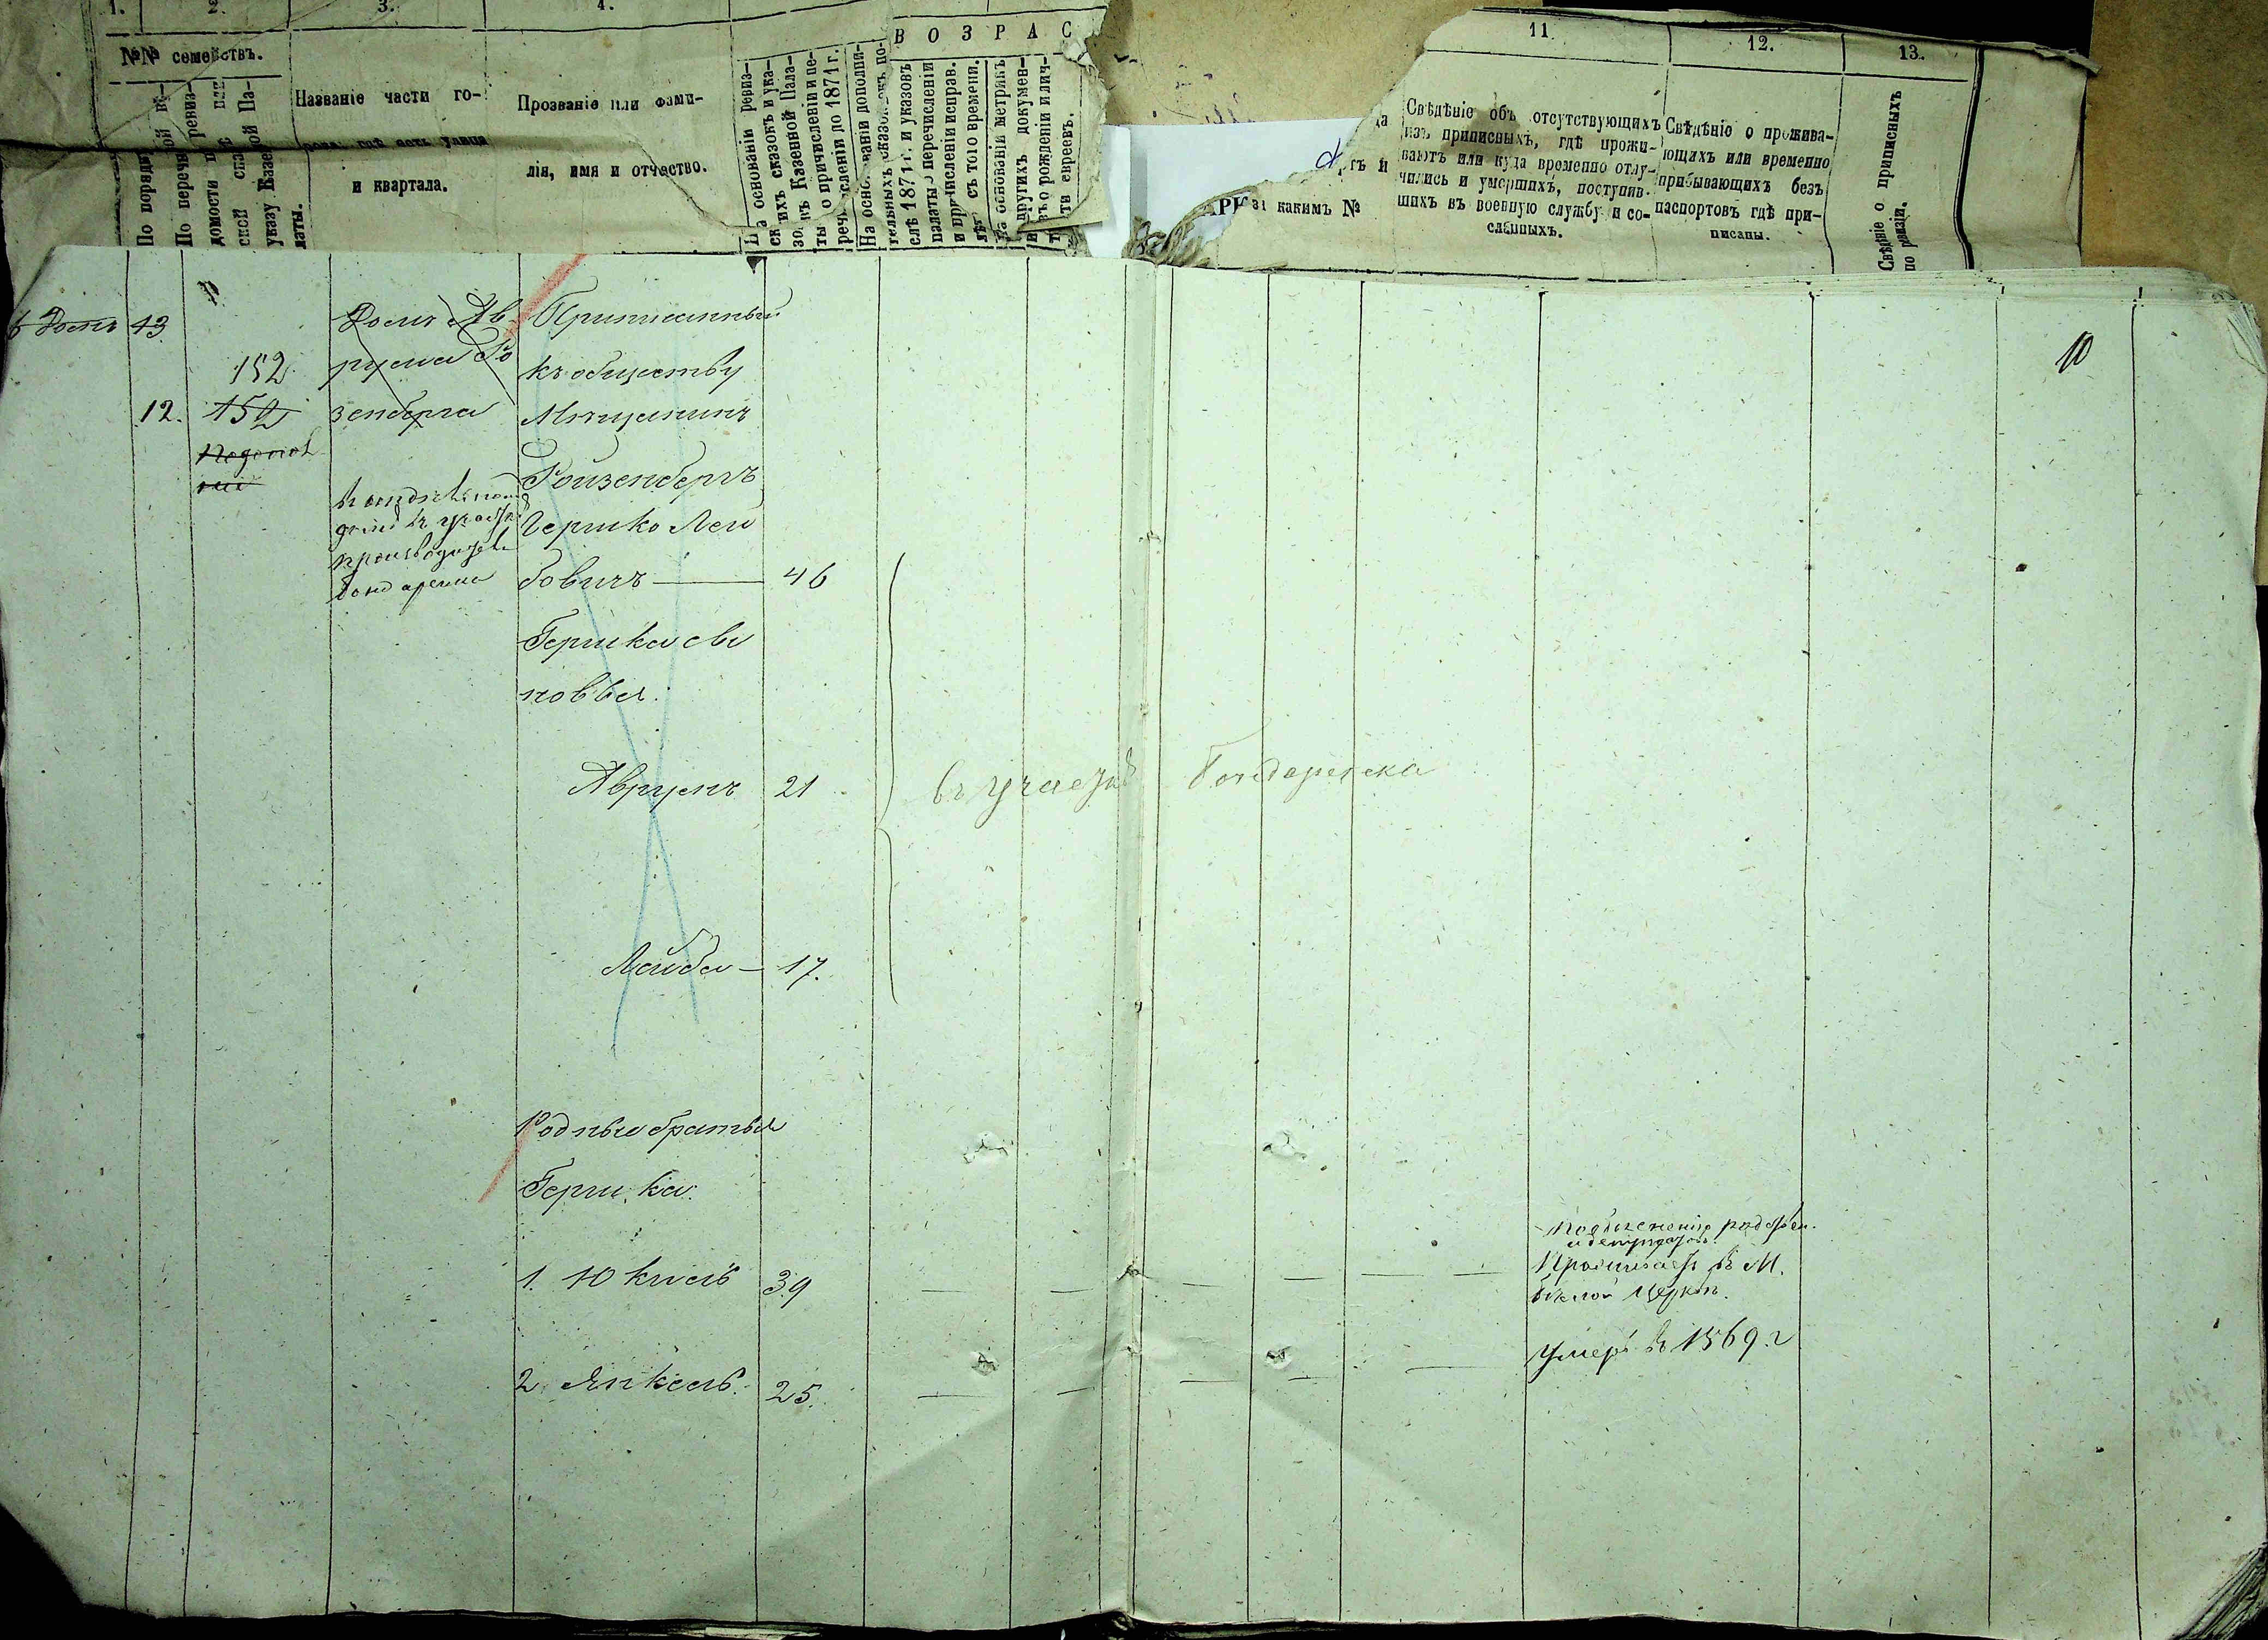 1. 2. 3. 4.
№№ семействъ.
По порядку
По перечневой вѣ-
домости или ревиз-
ской сказкѣ или
указу Казеной Па-
латы.
Названіе части го-
рода, гдѣ есть улица
и квартала.
Прозваніе или фами-
лія, имя и отчество.
ВОЗРАС
На основаніи ревиз-
скихъ сказокъ и ука-
зовъ Казенной Пала-
ты о причисленіи и пе-
речисленіи до 1871 г.
На основаніи дополни-
тельныхъ сказокъ по-
слѣ 1871 г. и указовъ
палаты о перечисленіи
и причисленіи исправ.
лѣтъ съ того времени.
На основаніи метрикъ
и другихъ докумен-
въ о рожденіи и лич-
ти евреевъ.
каким № 
11
Свѣдѣніе объ отсутствующихъ
изъ приписныхъ, гдѣ прожи-
ваютъ или куда временно отлу-
чились и умершихъ, поступив-
шихъ въ военную службу и со-
сланныхъ.
12.
Свѣдѣніе о прожива-
ющихъ или временно
прибывающихъ безъ
паспортовъ гдѣ при-
писаны.
13.
Свѣдѣніе о приписныхъ
по ревизіи.
10
6 Домъ 13.
Домъ Ав
рума Ро
зенберга
152
12. 152
Бондаренка
Приписанный
къ обществу
Мѣщанинъ
Ройзенбергъ
Гершко Лей
бовичъ — 46
Гершка сы
новья.
Аврумъ 21
въ участкѣ Бондаренка
Лейба — 17.
Родные братья
Гершка.
1. Юкиль 39
Проживаетъ въ М.
Бѣлой Церкви.
2. Янкель. 25.
Умеръ въ 1869. г